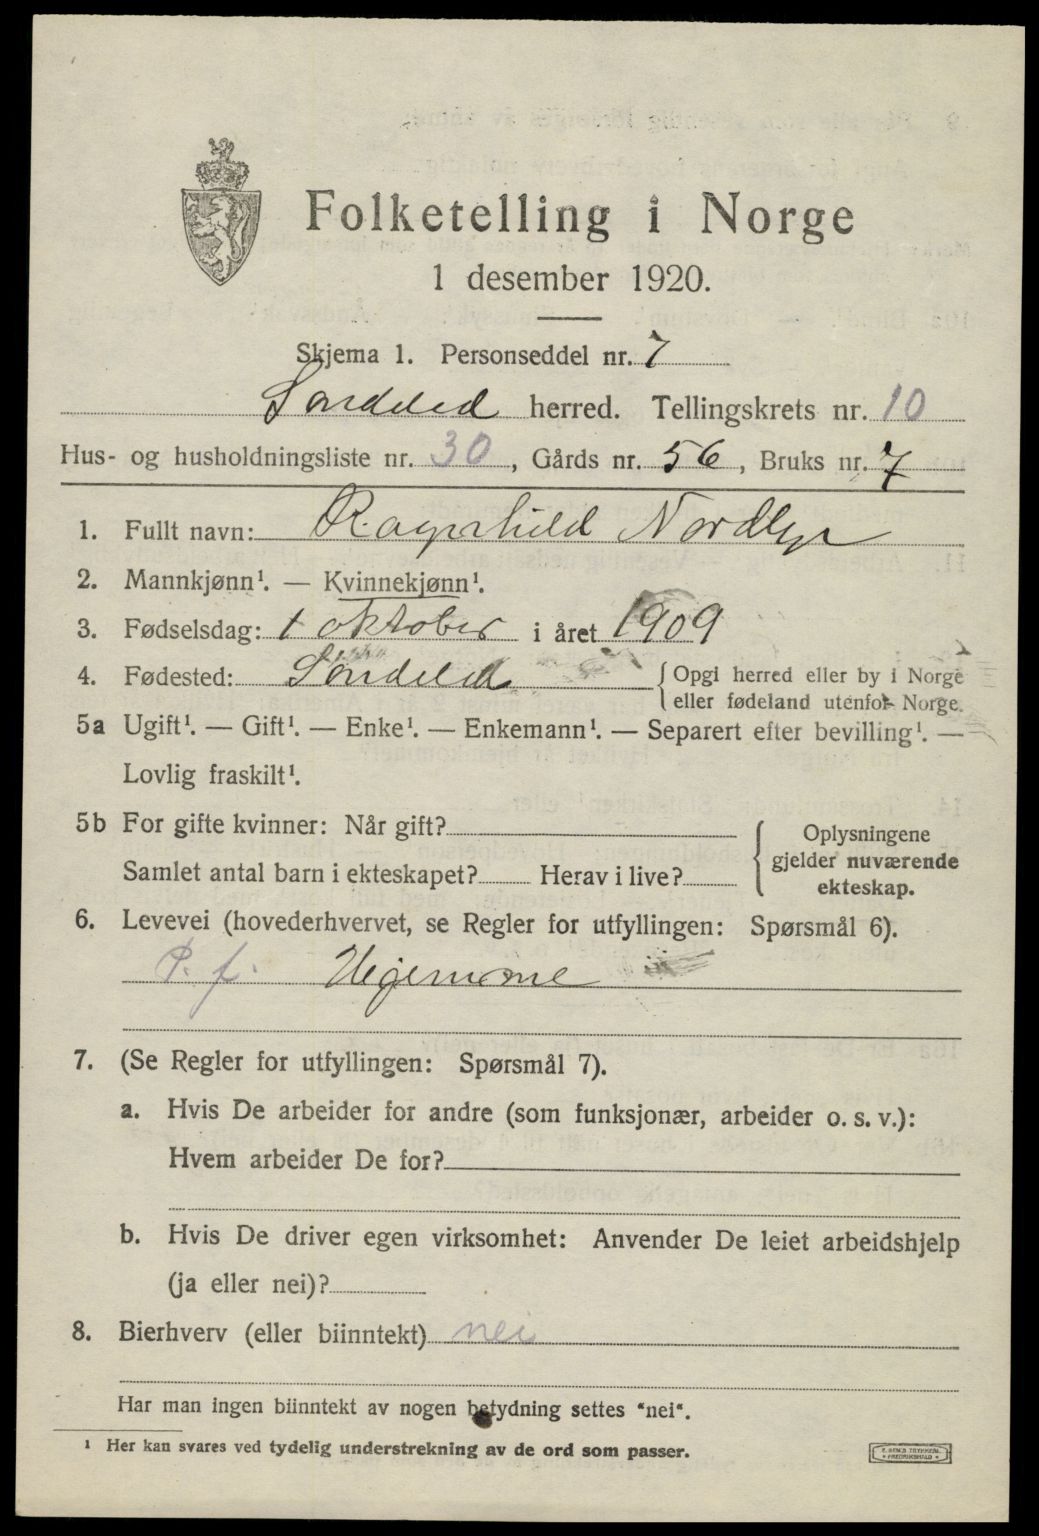 Folketelling i Norge
1 desember 1920.
Skjema 1. Personseddel nr. 7
Søndeled herred. Tellingskrets nr. 10
Hus- og husholdningsliste nr. 30, Gårds nr. 56, Bruks nr. 7
1. Fullt navn: Ragnhild Nordbye
2. Mannkjønn¹. — Kvinnekjønn¹.
3. Fødselsdag: 1 oktober i året 1909
4. Fødested: Søndeled { Opgi herred eller by i Norge
eller fødeland utenfor Norge.
5a Ugift¹. — Gift¹. — Enke¹. — Enkemann¹. — Separert efter bevilling¹. —
Lovlig fraskilt¹.
5b For gifte kvinner: Når gift?
Samlet antal barn i ekteskapet? Herav i live?
Oplysningene
gjelder nuværende
ekteskap.
6. Levevei (hovederhvervet, se Regler for utfyllingen: Spørsmål 6).
P. f. Hjemme
7. (Se Regler for utfyllingen: Spørsmål 7).
a. Hvis De arbeider for andre (som funksjonær, arbeider o. s. v.):
Hvem arbeider De for?
b. Hvis De driver egen virksomhet: Anvender De leiet arbeidshjelp
(ja eller nei)?
8. Bierhverv (eller biinntekt) nei
Har man ingen biinntekt av nogen betydning settes "nei".
¹ Her kan svares ved tydelig understrekning av de ord som passer.